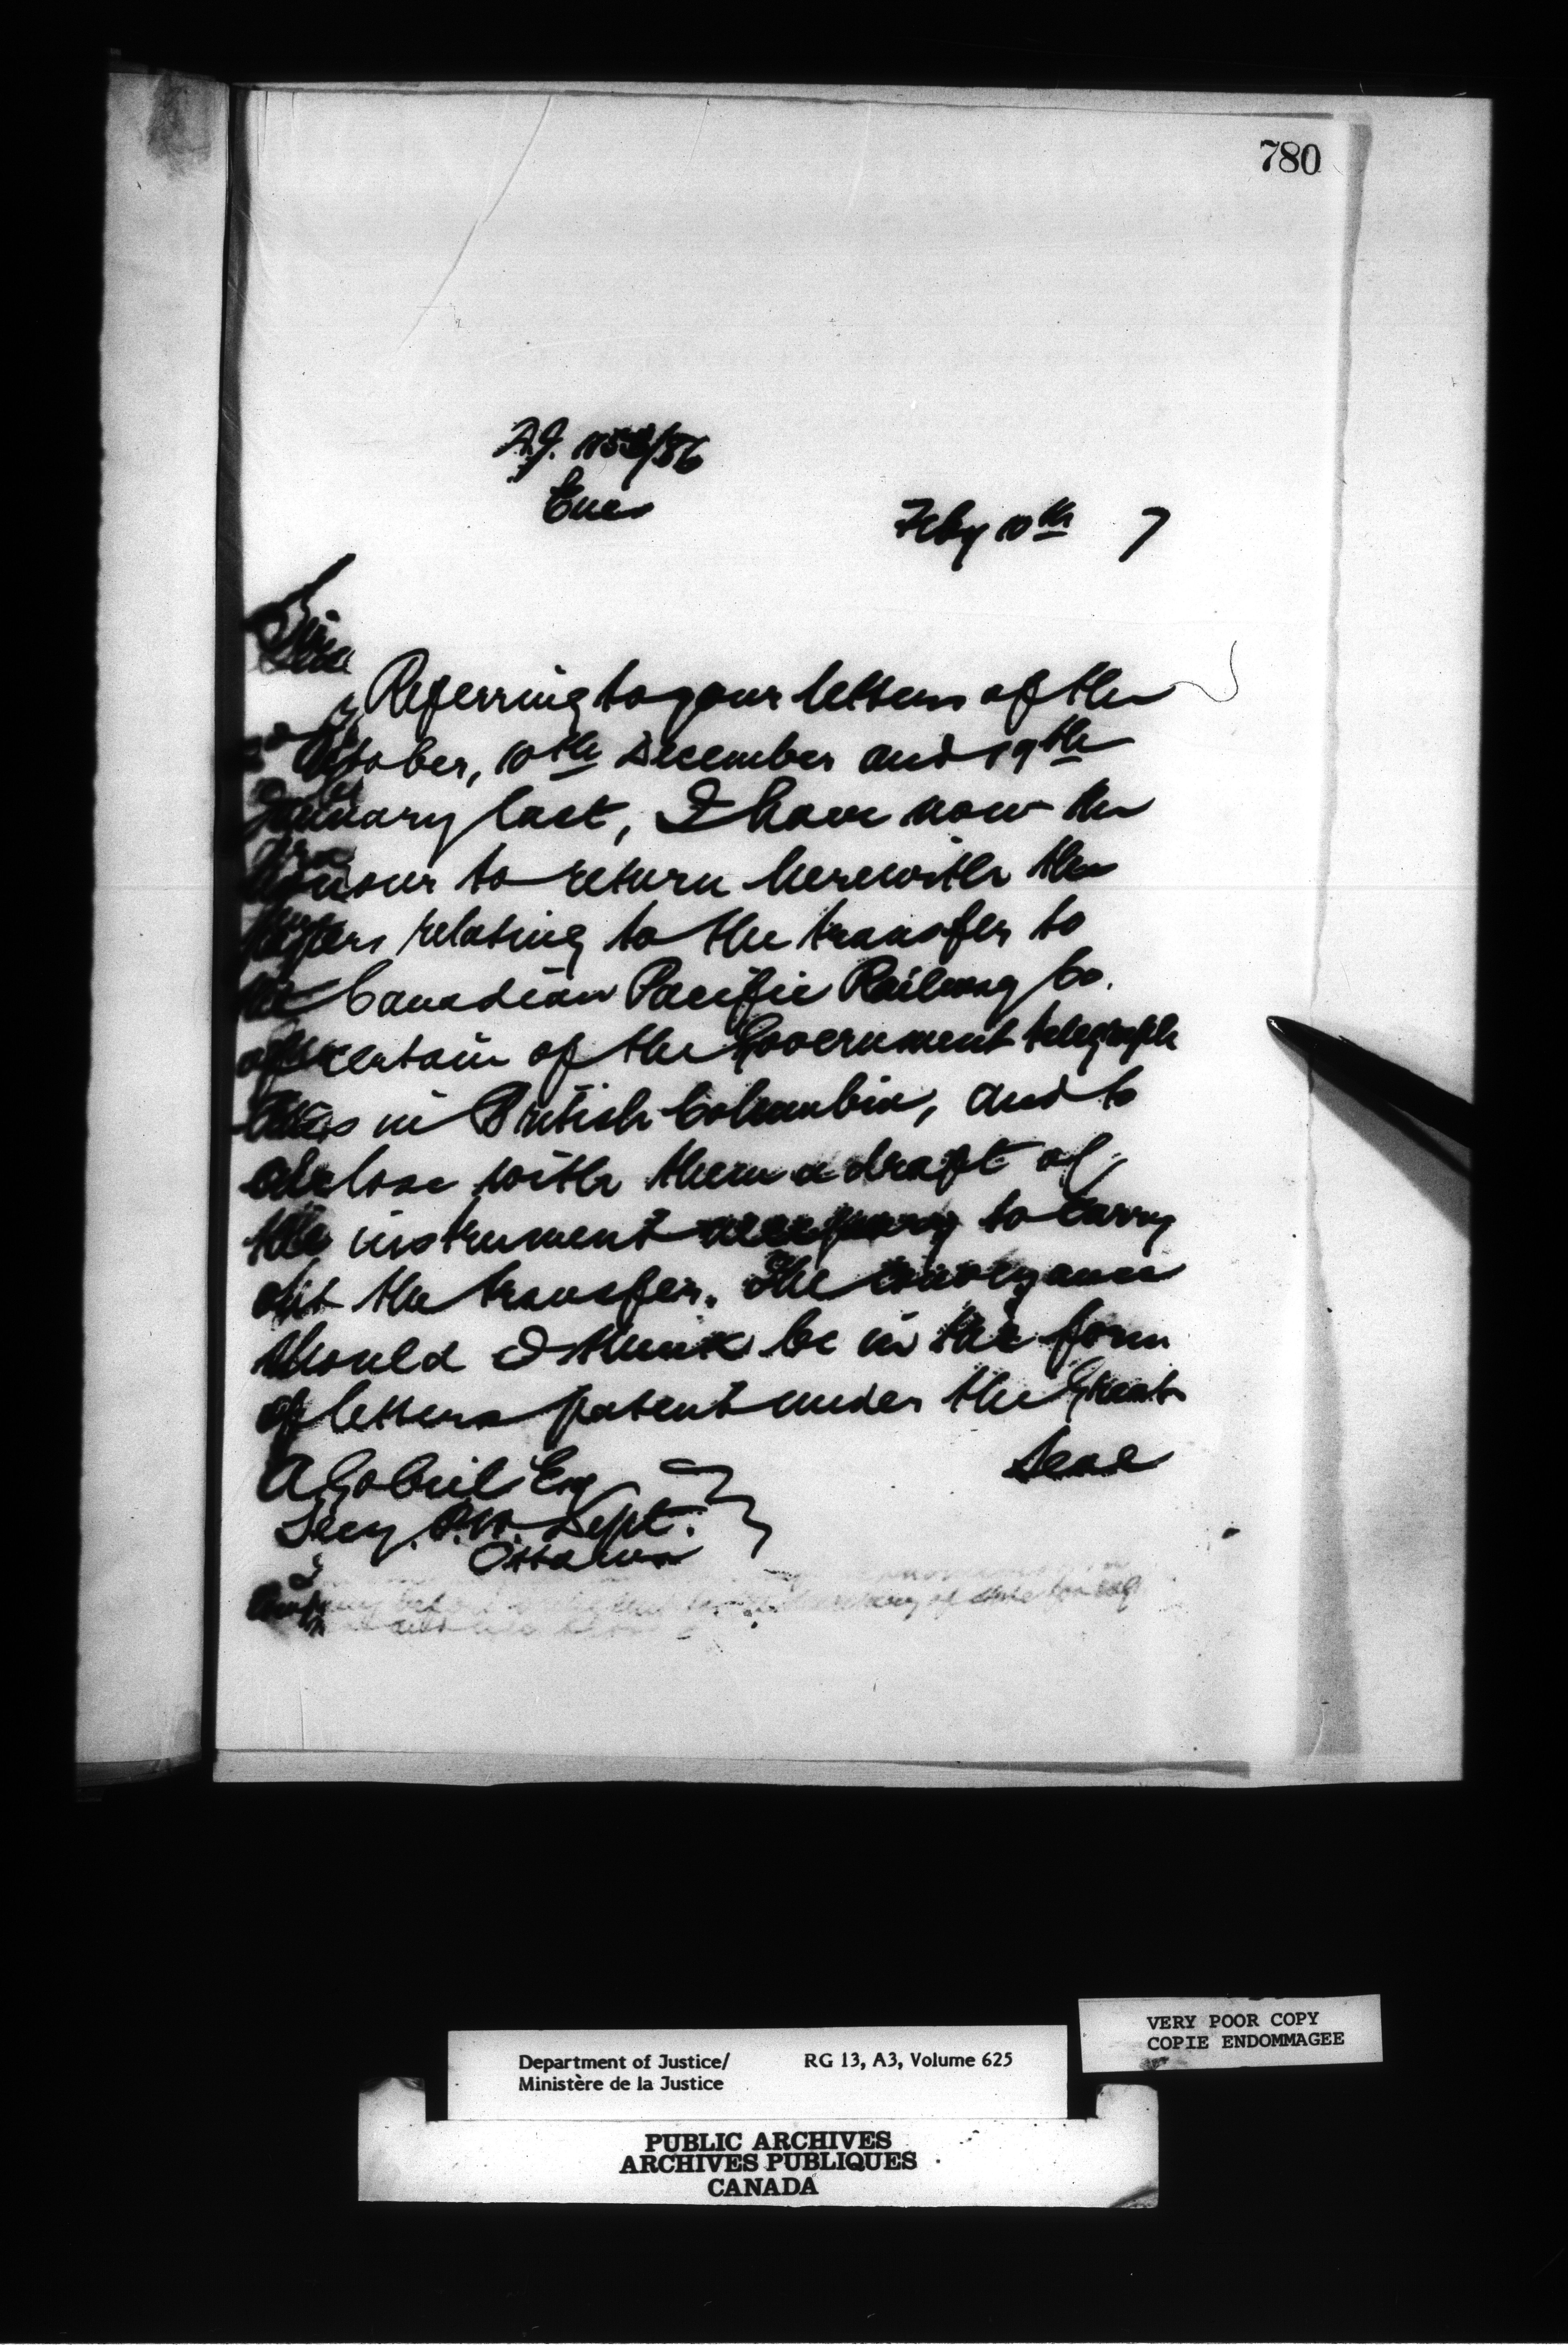 780
A.J. 1152/86
Enc
Feby 10th 7
Sir
Referring to your letters of the
October, 10th December and 19th
January last, I have now the
honour to return herewith the
papers relating to the transfer to
the Canadian Pacific Railway Co.
of certain of the Government telegraph
lines in British Columbia, and to
enclose with them a draft of
the instrument necessary to carry
out the transfer. The conveyance
should I think be in the form
of letters patent under the Great
Seal
A Gobeil Esq
Secy. P.W. Dept.
Ottawa
VERY POOR COPY
COPIE ENDOMMAGEE
Department of Justice/ RG 13, A3, Volume 625
Ministère de la Justice
PUBLIC ARCHIVES
ARCHIVES PUBLIQUES
CANADA